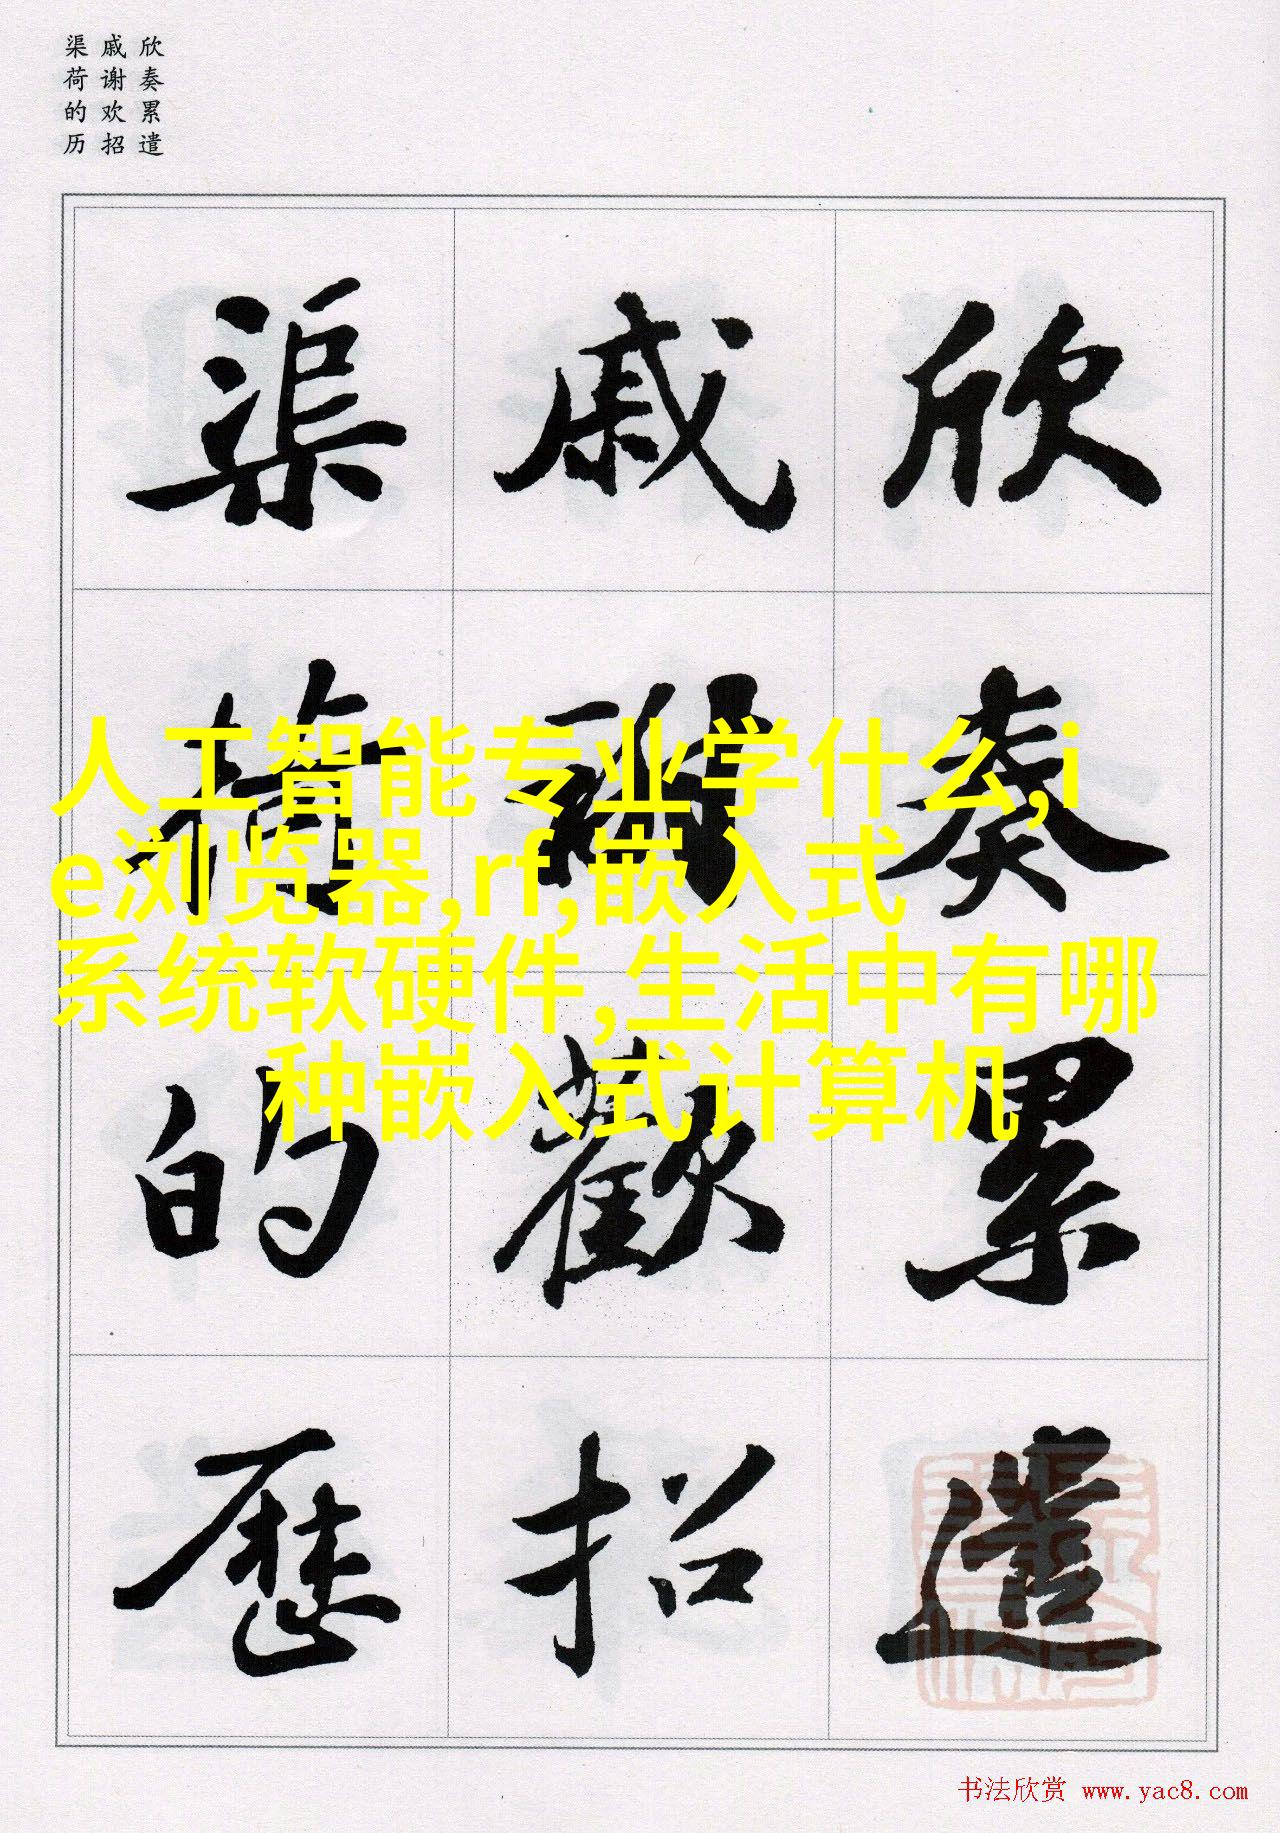 欣奏累遣
戚谢欢招
渠荷的历
欣奏累遣
戚謝歡招
渠荷的歷
人工智能专业学什么,i
e浏览器,rf,嵌入式
系统软硬件,生活中有哪
种嵌入式计算机
书法欣赏 www.yac8.com